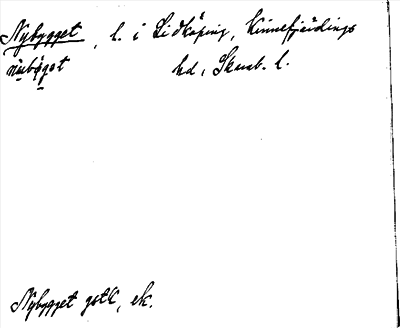 Nybygget, l. i Lidköping, Kinnefjärdings
nübǥget hd, Skarab. l.
Nybygget gstK, ek.